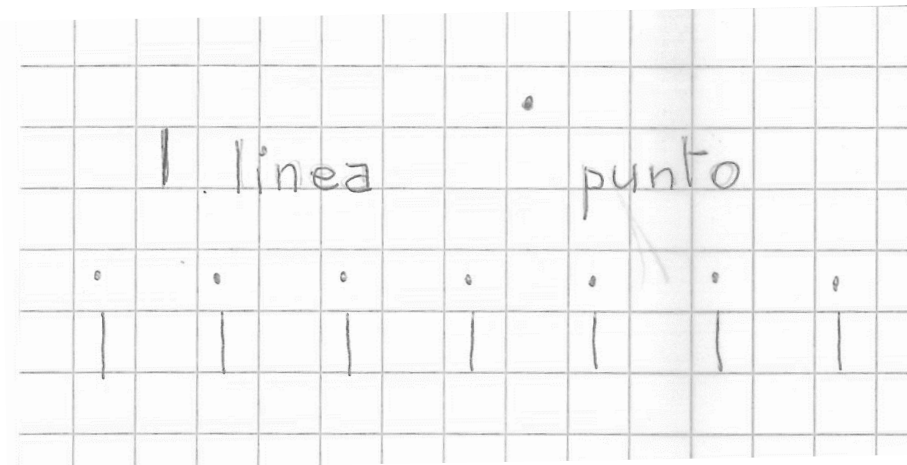 linea punto